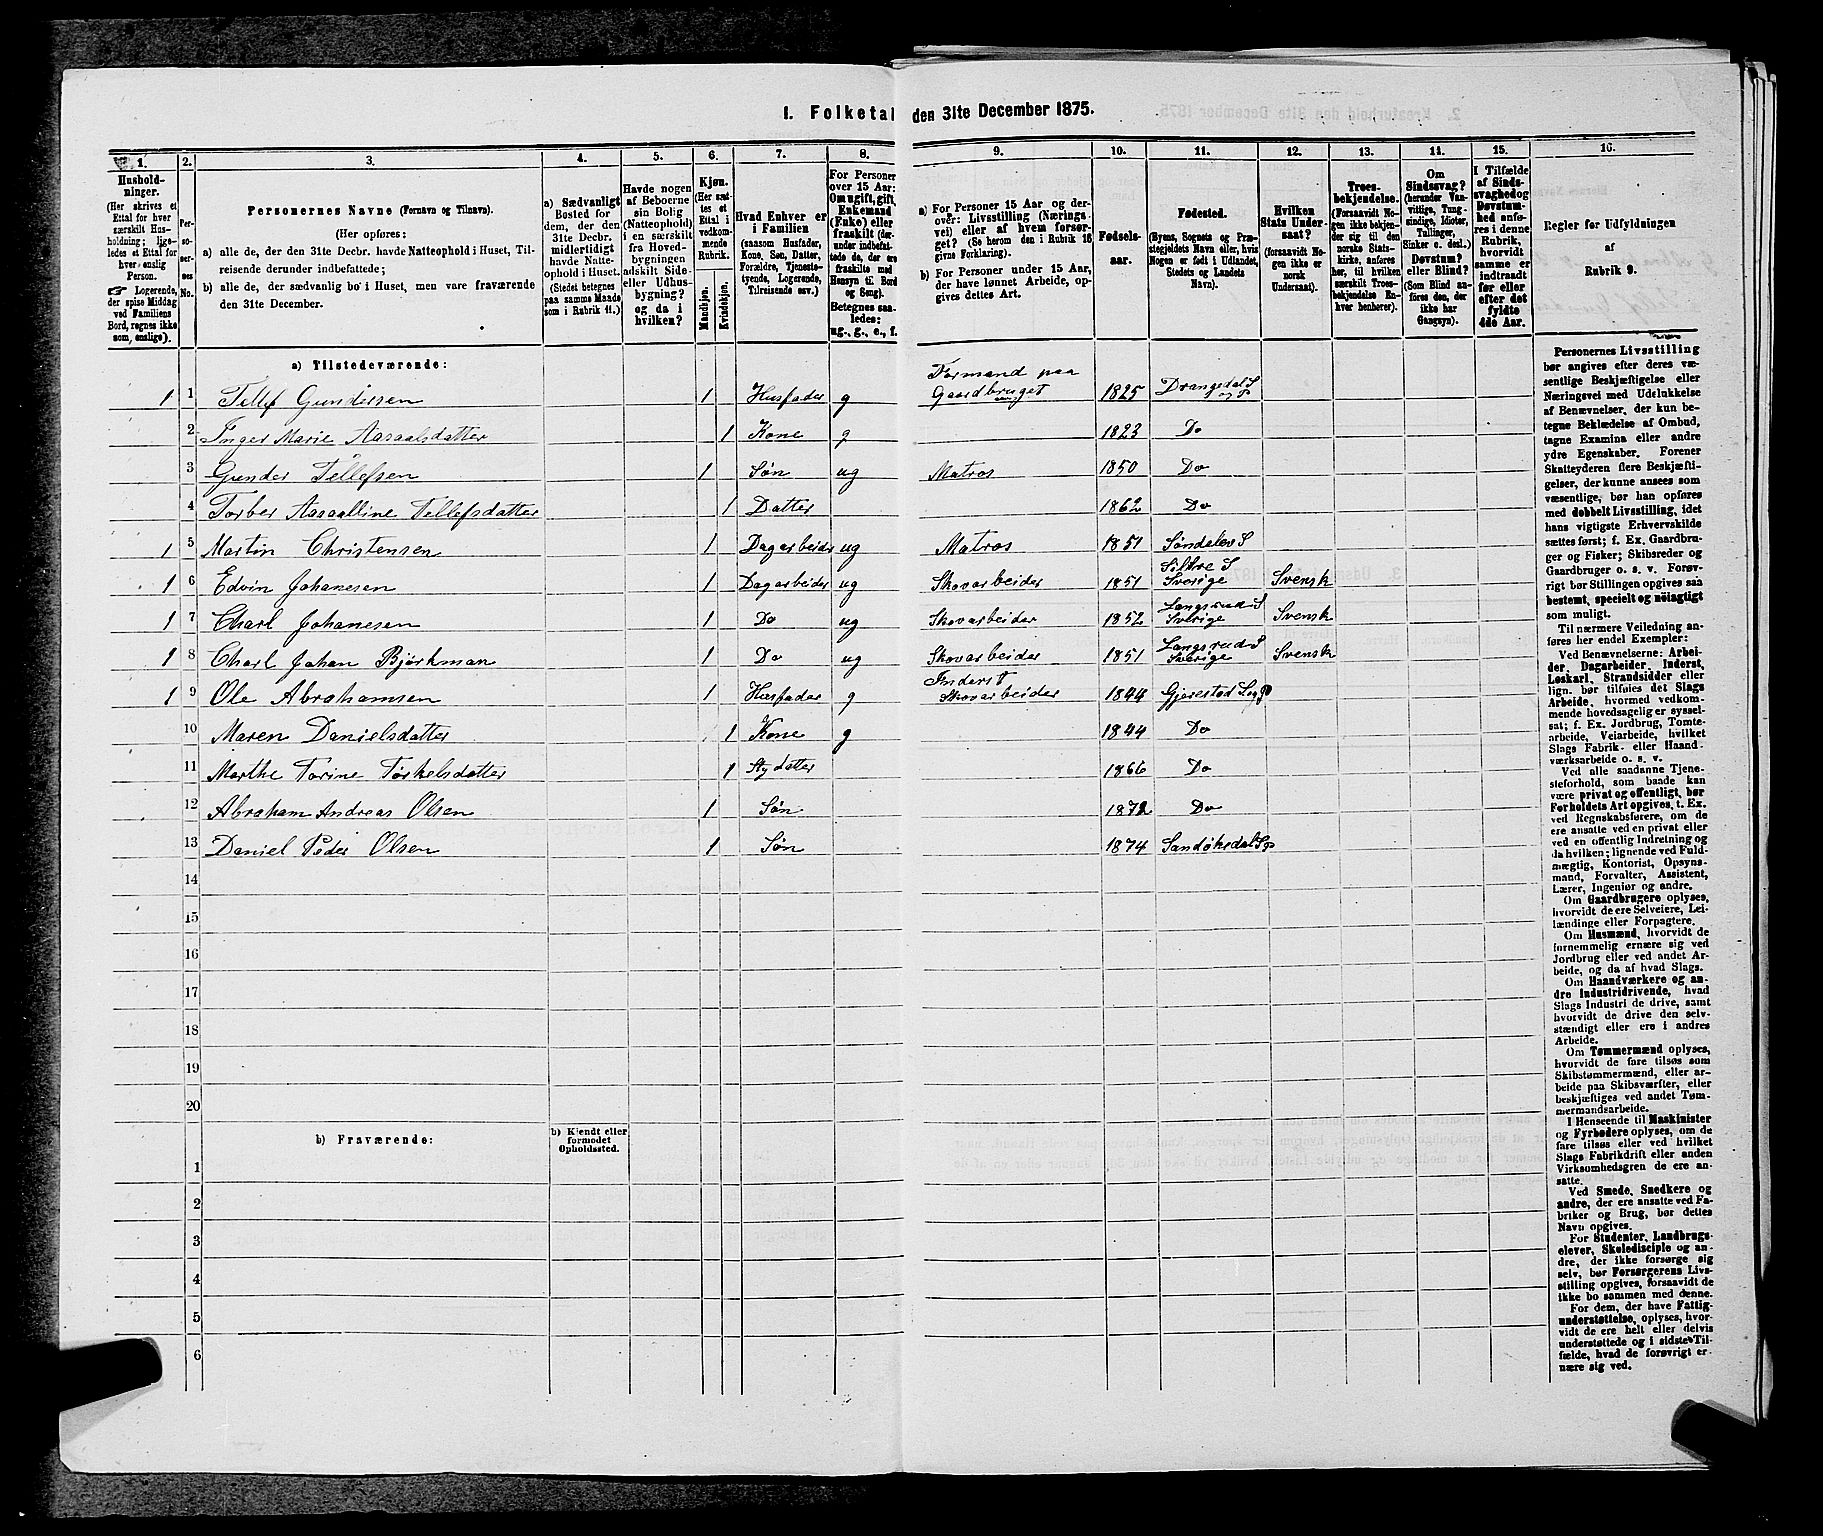 I. Folketal den 31te December 1875.
1. 2. 3. 4. 5. 6. 7. 8. 9. 10. 11. 12. 13. 14. 15. 16.
Husholdninger. (Her skrives et Ettal for hver særskilt Husholdning; ligeledes et Ettal for hver enslig Person. ☞ Logerende, der spise Middag ved Familiens Bord, regnes ikke som enslige).
Personernes No.
Personernes Navne (Fornavn og Tilnavn).
(Her opføres:
a) alle de, der den 31te Decbr. havde Natteophold i Huset, Tilreisende derunder indbefattede;
b) alle de, der sædvanlig bo i Huset, men vare fraværende den 31te December.
a) Sædvanligt Bosted for dem, der den 31te Decbr. midlertidigt havde Natteophold i Huset. (Stedet betegnes paa samme Maade som i Rubrik 11.)
Havde nogen af Beboerne sin Bolig (Natteophold) i en særskilt fra Hovedbygningen adskilt Side- eller Udhusbygning? og da i hvilken?
Kjøn. (Her sættes et Ettal i vedkommende Rubrik. Mandkjøn. Kvindekjøn.
Hvad Enhver er i Familien (saasom Husfader, Kone, Søn, Datter, Forældre, Tjenestetyende, Logerende, Tilreisende osv.)
For Personer over 15 Aar: Om ugift, gift, Enkemand (Enke) eller fraskilt (derunder indbefattede de, der ere fraskilte med Hensyn til Bord og Seng). Betegnes saaledes: ug., g., e., f.
a) For Personer 15 Aar og derover: Livsstilling (Næringsvei) eller af hvem forsørget? (Se herom den i Rubrik 16 givne Forklaring).
b) For Personer under 15 Aar, der have lønnet Arbeide, opgives dettes Art.
Fødselsaar.
Fødested. (Byens, Sognets og Præstegjeldets Navn eller, hvis Nogen er født i Udlandet, Stedets og Landets Navn).
Hvilken Stats Undersaat? (forsaavidt Nogen ikke er norsk Undersaat).
Troesbekjendelse. (Forsaavidt Nogen ikke bekjender sig til den norske Statskirke, anføres her, til hvilken særskilt Troesbekjendelse Enhver henhører).
Om Sindssvag? (herunder Vanvittige, Tungsindige, Idioter, Tullinger, Sinker o. desl.) Døvstum? eller Blind? (Som Blind anføres den, der ikke har Gangsyn).
I Tilfælde af Sindssvaghed og Døvstumhed anføres i denne Rubrik, hvorvidt samme er indtraadt før eller efter det fyldte 4de Aar.
Regler for Udfyldningen af Rubrik 9.
a) Tilstedeværende:
1 1 Tellef Gundersen 1 Husfader g Formand paa Gaardbruget 1825 Drangedal S og P
2 Inger Marie Aasaalsdatter 1 Kone g 1823 Do
3 Gunder Tellefsen 1 Søn ug Matros 1850 Do
4 Torber Aasaalline Tellefsdatter 1 Datter 1862 Do
1 5 Martin Christensen 1 Dagarbeider ug Matros 1851 Søndelev S
1 6 Edvin Johanesen 1 Dagarbeider ug Skovarbeider 1851 Sverige Svensk
1 7 Charl Johanesen 1 Do ug Skovarbeider 1852 Langsrud S Sverige Svensk
1 8 Charl Johan Bjørkman 1 Do ug Skovarbeider 1851 Langsrud S Sverige Svensk
1 9 Ole Abrahamsen 1 Husfader g Inderst Skovarbeider 1844 Gjerestad S og P
10 Maren Danielsdatter 1 Kone g 1844 Do
11 Marthe Torine Torkelsdatter 1 Stydatter 1866 Do
12 Abraham Andreas Olsen 1 Søn 1872 Do
13 Daniel Peder Olsen 1 Søn 1874 Sandøkedal S P
14
15
16
17
18
19
20
b) Fraværende: b) Kjendt eller formodet Opholdssted.
1
2
3
4
5
6
Personernes Livsstilling
bør angives efter deres væ-
sentlige Beskjæftigelse eller
Næringsvei med Udelukkelse
af Benævnelser, der kun be-
tegne Beklædelse af Ombud,
tagne Examina eller andre
ydre Egenskaber. Forener
Skatteyderen flere Beskjæfti-
gelser, der kunne ansees som
væsentlige, bør han opføres
med dobbelt Livsstilling, idet
hans vigtigste Erhvervskilde
sættes først; f. Ex. Gaardbru-
ger og Fisker; Skibsreder og
Gaardbruger o. s. v. Forøv-
rigt bør Stillingen opgives saa
bestemt, specielt og nøiagtigt
som muligt.
Til nærmere Veiledning an-
føres her endel Exempler:
Ved Benævnelserne: Arbei-
der, Dagarbeider, Inderst,
Løskarl, Strandsidder eller
lign. bør tilføies det Slags
Arbeide, hvormed vedkom-
mende hovedsagelig er syssel-
sat; f. Ex. Jordbrug, Tomte-
arbeide, Veiarbeide, hvilket
Slags Fabrik- eller Haand-
værksarbeide o. s. v.
Ved alle saadanne Tjene-
steforhold, som baade kan
være privat og offentligt, bør
Forholdets Art opgives, t. Ex.
ved Regnskabsførere, om de
ere ansatte ved en privat eller
ved en offentlig Indretning og
da hvilken; lignende ved Fuld-
mægtig, Kontorist, Opsyns-
mand, Forvalter, Assistent,
Lærer, Ingeniør og andre.
Om Gaardbrugere oplyses,
hvorvidt de ere Selveiere, Lei-
lændinge eller Forpagtere.
Om Husmænd, hvorvidt de
fornemmelig ernære sig ved
Jordbrug eller ved andet Ar-
beide, og da af hvad Slags.
Om Haandværkere og an-
dre Industridrivende, hvad
Slags Industri de drive, samt
hvorvidt de drive den selv-
stændigt eller ere i andres
Arbeide.
Om Tømmermænd oplyses,
hvorvidt de fare tilsøs som
Skibstømmermænd, eller ar-
beide paa Skibsværfter, eller
beskjæftiges ved andet Tøm-
mermandsarbeide.
I Henseende til Maskinister
og Fyrbødere oplyses, om de
fare tilsøs eller ved hvilket
Slags Fabrikdrift eller anden
Virksomhedsgren de ere an-
satte.
Ved Smede, Snedkere og
andre, der ere ansatte ved Fa-
briker og Brug, bør dettes
Navn opgives.
For Studenter, Landbrugs-
elever, Skoledisciple og an-
dre, der ikke forsørge sig
selv, bør Forsørgerens Livs-
stilling opgives, forsaavidt de
ikke bo sammen med denne.
For dem, der have Fattig-
understøttelse, oplyses, hvor-
vidt de ere helt eller delvis
understøttede og i sidste Til-
fælde, hvad de forøvrigt er-
nære sig ved.